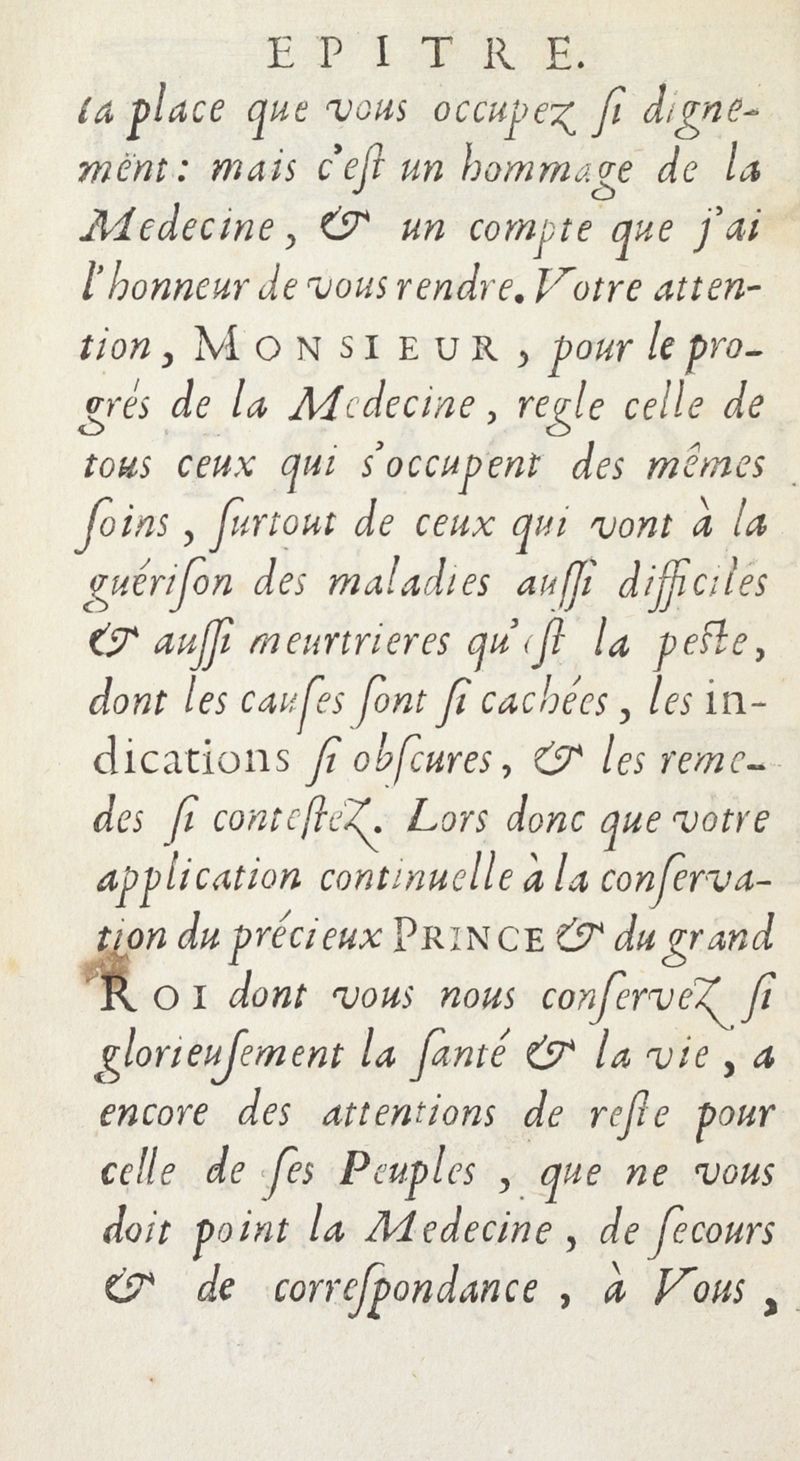 EPITRE.
la place que vous occupez ſi digne-
mént : mais c'eſt un hommage de la
Medecine, & un compte que j'ai
l'honneur de vous rendre. Votre atten-
tion, MONSIEUR, pour le pro-
grés de la Medecine, regle celle de
tous ceux qui s'occupent des mêmes
ſoins, ſurtout de ceux qui vont à la
guériſon des maladies auſſi difficiles
& auſſi meurtrieres qu'eſt la peſte,
dont les cauſes ſont ſi cachées, les in-
dications ſi obſcures, & les reme-
des ſi conteſtez. Lors donc que votre
application continuelle à la conſerva-
tion du précieux PRINCE & du grand
ROI dont vous nous conſervez ſi
glorieuſement la ſanté & la vie, a
encore des attentions de reſte pour
celle de ſes Peuples, que ne vous
doit point la Medecine, de ſecours
& de correſpondance, à Vous,